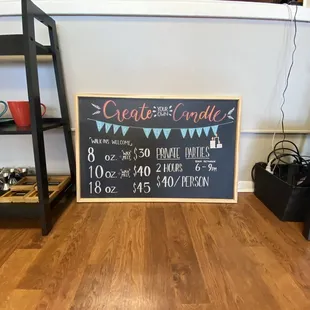 Create YOUR OWN Candle
"WALK INS WELCOME"
8 oz. $30
10 oz. $40
18 oz. $45
PRIVATE PARTIES
2 HOURS 6-9pm
$40/PERSON